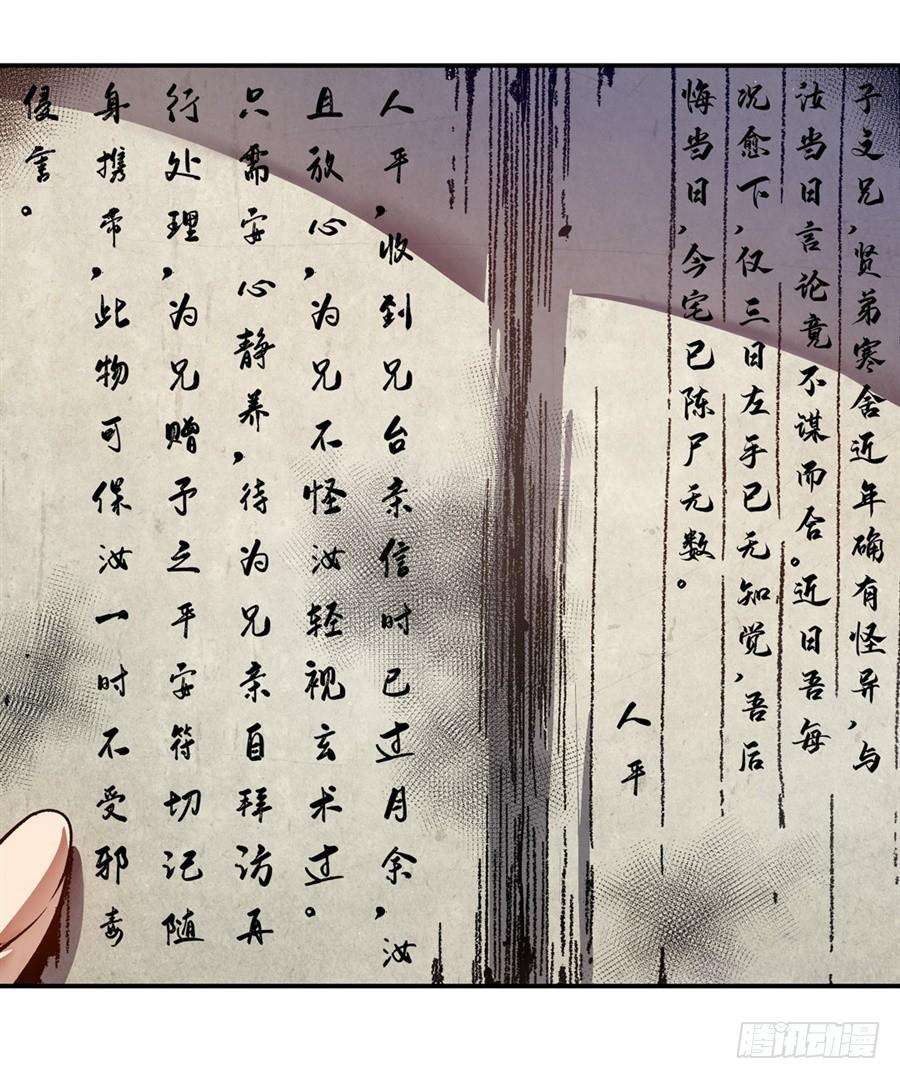 子文兄,贤弟寒舍近年确有怪异,与
汝当日言论竟不谋而合。近日吾每
况愈下,仅三日左手已无知觉,吾后
悔当日,今宅已陈尸无数。
人平
人平,收到兄台亲信时已过月余,汝
且放心,为兄不怪汝轻视玄术过。
只需安心静养,待为兄亲自拜访再
行处理,为兄赠予之平安符切记随
身携带,此物可保汝一时不受邪毒
侵害。
腾讯动漫